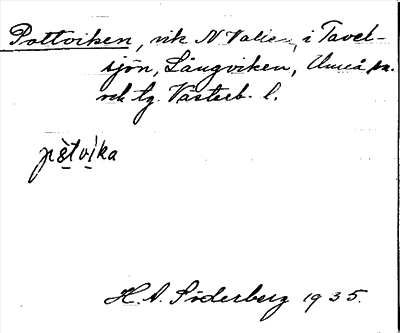 Pottviken, vik N i Tavel-
sjön, Långviken, Umeå sn.
och tg. Västerb. l.
H. A. Söderberg 1935.